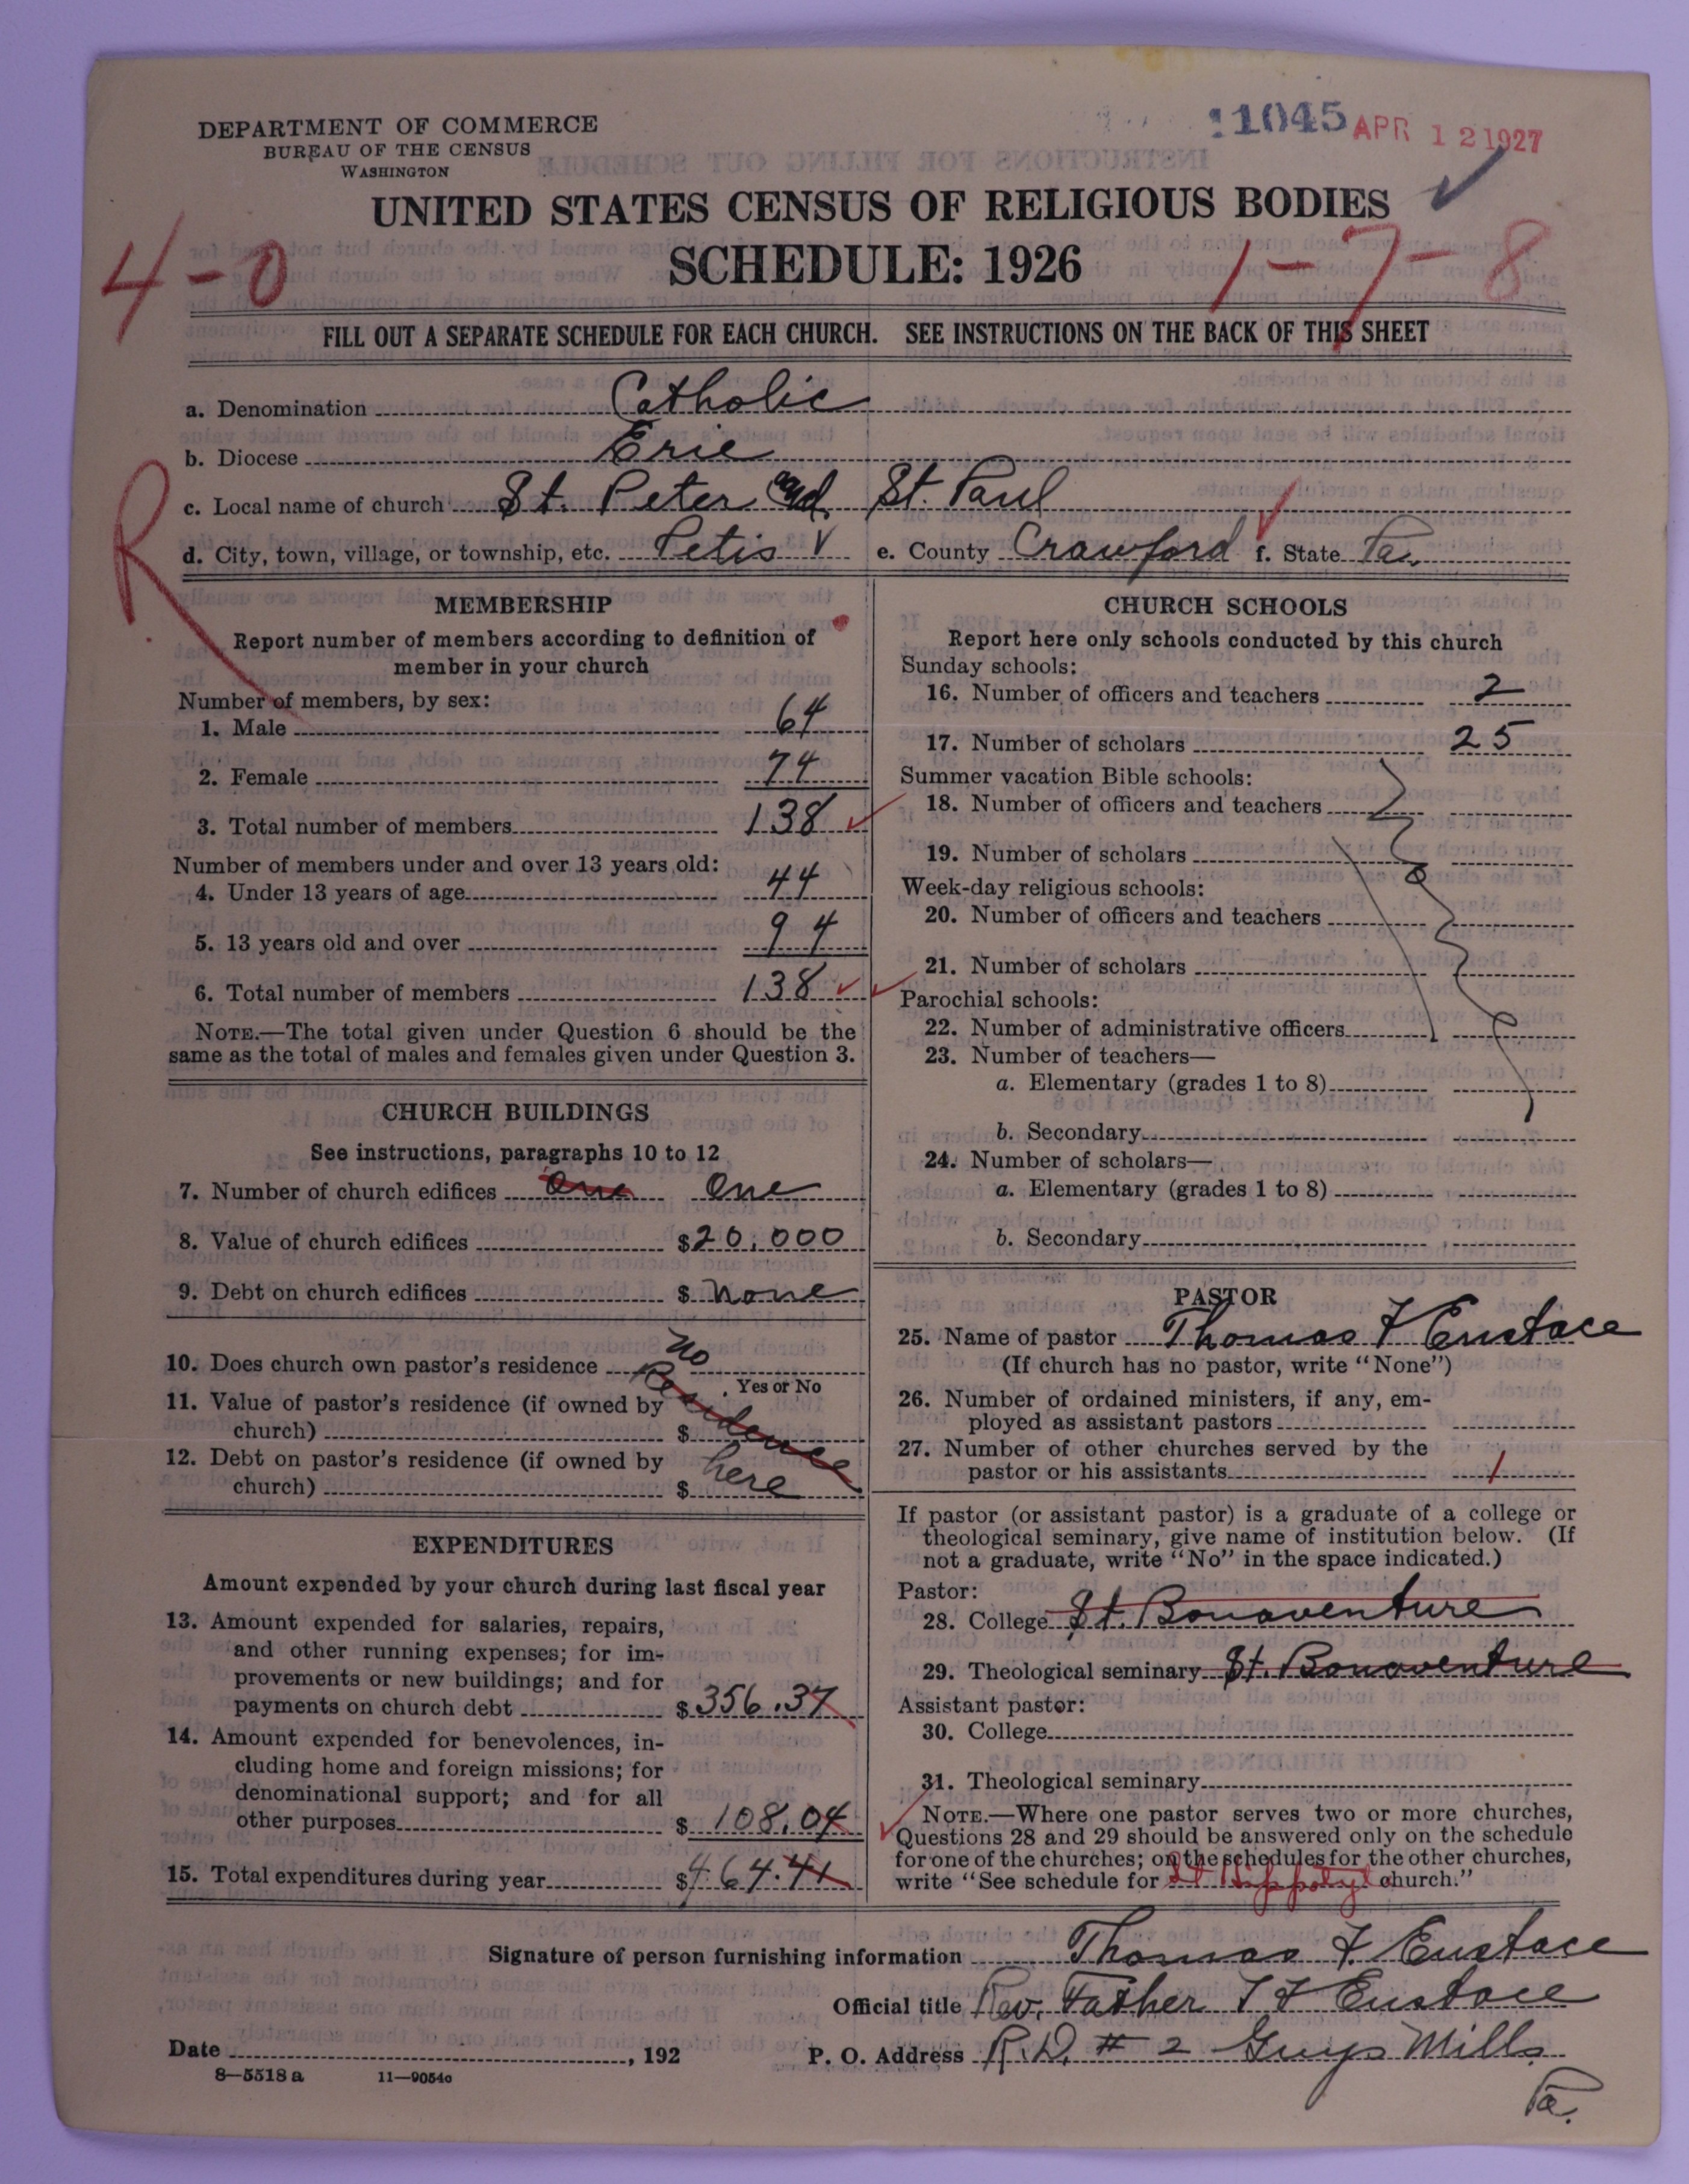 11045 APR 12 1927
DEPARTMENT OF COMMERCE
BUREAU OF THE CENSUS
WASHINGTON
UNITED STATES CENSUS OF RELIGIOUS BODIES
SCHEDULE: 1926
4-0
1-7-8
FILL OUT A SEPARATE SCHEDULE FOR EACH CHURCH. SEE INSTRUCTIONS ON THE BACK OF THIS SHEET
a. Denomination Catholic
b. Diocese Erie
c. Local name of church St. Peter and St. Paul
d. City, town, village, or township, etc. Petis e. County Crawford f. State Pa.
R
MEMBERSHIP
Report number of members according to definition of
member in your church
Number of members, by sex:
1. Male 64
2. Female 74
3. Total number of members 138
Number of members under and over 13 years old:
4. Under 13 years of age 44
5. 13 years old and over 94
6. Total number of members 138
NOTE.—The total given under Question 6 should be the
same as the total of males and females given under Question 3.
CHURCH BUILDINGS
See instructions, paragraphs 10 to 12
7. Number of church edifices One One
8. Value of church edifices $20,000
9. Debt on church edifices $ None
10. Does church own pastor's residence No
Yes or No
11. Value of pastor's residence (if owned by
church) $ Residence
12. Debt on pastor's residence (if owned by
church) $ here
EXPENDITURES
Amount expended by your church during last fiscal year
13. Amount expended for salaries, repairs,
and other running expenses; for im-
provements or new buildings; and for
payments on church debt $356.37
14. Amount expended for benevolences, in-
cluding home and foreign missions; for
denominational support; and for all
other purposes $108.04
15. Total expenditures during year $464.41
CHURCH SCHOOLS
Report here only schools conducted by this church
Sunday schools:
16. Number of officers and teachers 2
17. Number of scholars 25
Summer vacation Bible schools:
18. Number of officers and teachers
19. Number of scholars
Week-day religious schools:
20. Number of officers and teachers
21. Number of scholars
Parochial schools:
22. Number of administrative officers
23. Number of teachers—
a. Elementary (grades 1 to 8)
b. Secondary
24. Number of scholars—
a. Elementary (grades 1 to 8)
b. Secondary
PASTOR
25. Name of pastor Thomas F Eustace
(If church has no pastor, write "None")
26. Number of ordained ministers, if any, em-
ployed as assistant pastors
27. Number of other churches served by the
pastor or his assistants 1
If pastor (or assistant pastor) is a graduate of a college or
theological seminary, give name of institution below. (If
not a graduate, write "No" in the space indicated.)
Pastor:
28. College St. Bonaventure
29. Theological seminary St. Bonaventure
Assistant pastor:
30. College
31. Theological seminary
NOTE.—Where one pastor serves two or more churches,
Questions 28 and 29 should be answered only on the schedule
for one of the churches; on the schedules for the other churches,
write "See schedule for St Hippolyt church."
Signature of person furnishing information Thomas F. Eustace
Official title Rev. Father T F Eustace
Date , 192 P. O. Address R.D. # 2 Guys Mills
Pa.
8—5518 a 11—9054c